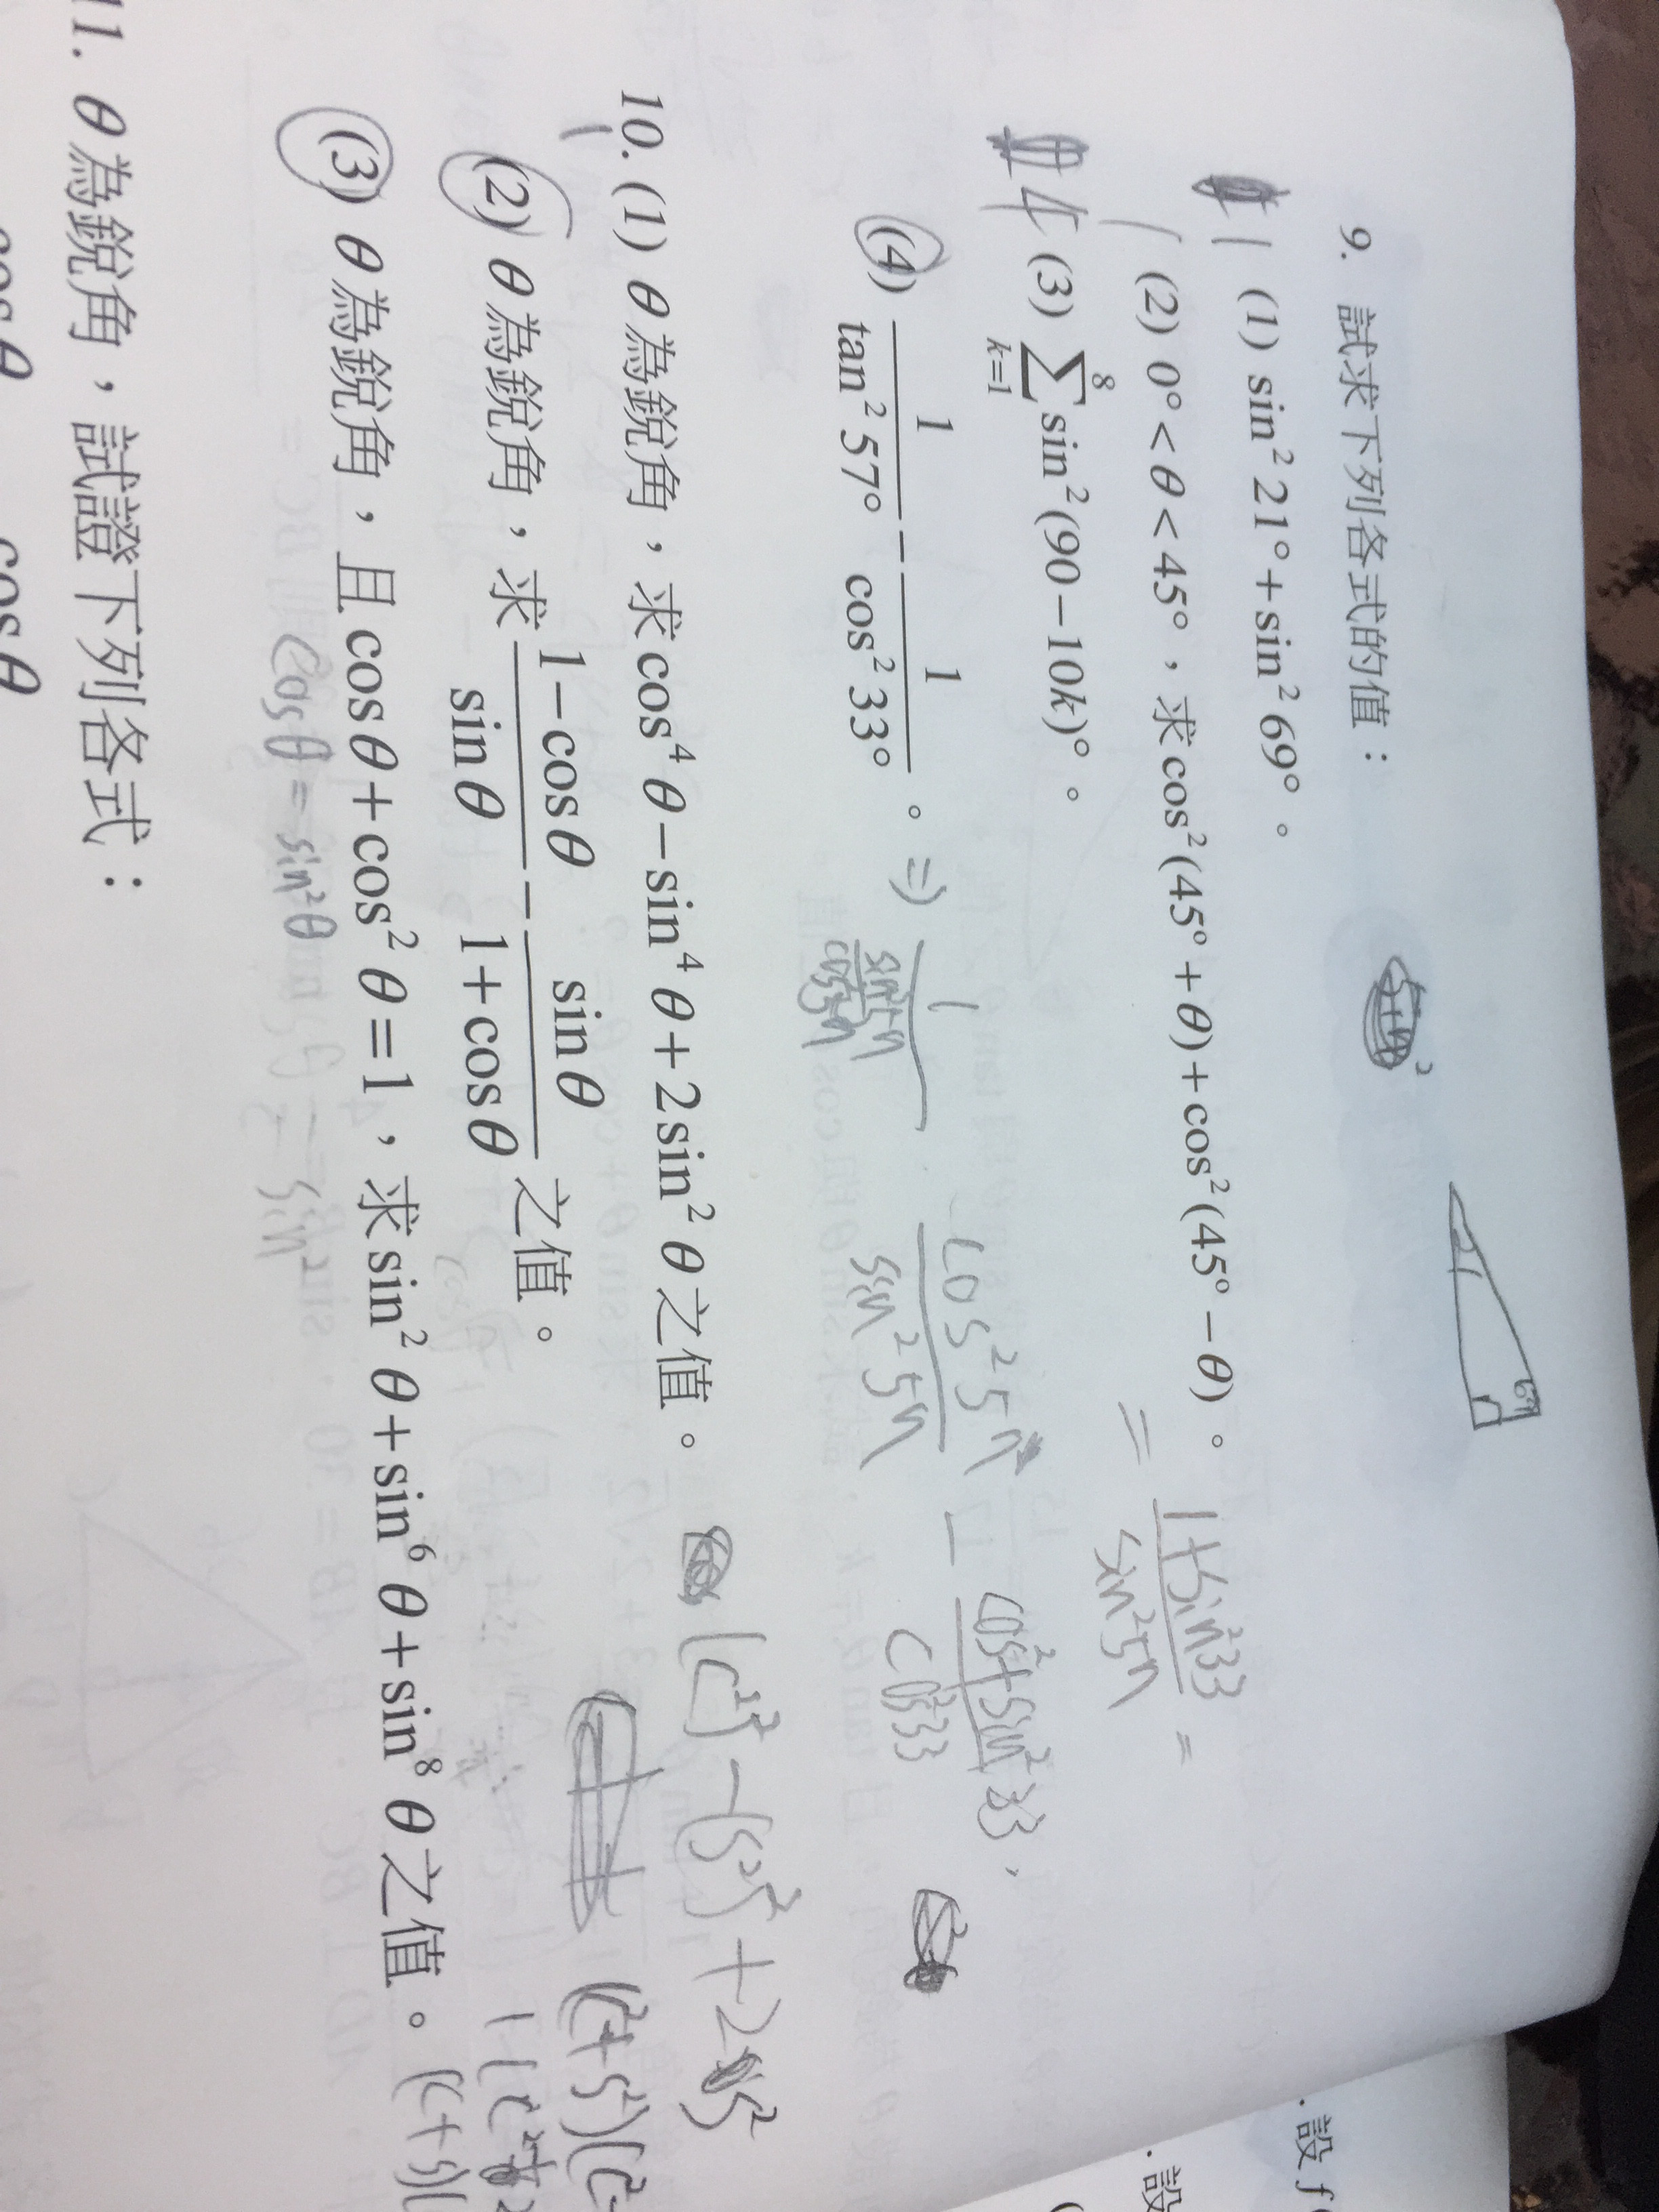 9. 試求下列各式的值：
1 (1) sin²21°+sin²69°。
1 (2) 0°<θ<45°，求cos²(45°+θ)+cos²(45°−θ)。
= (1+sin²33)/(sin²57) =
4 (3) \sum_{k=1}^{8} sin²(90−10k)°。
(4) 1/(tan²57°) − 1/(cos²33°)。 ⇒ 1/(sin²57/cos²57) (cos²57)/(sin²57) − (cos²+sin²33)/(cos²33)
10. (1) θ為銳角，求cos⁴θ−sin⁴θ+2sin²θ之值。 (c²)²−(s²)²+2s²
1
(2) θ為銳角，求(1−cosθ)/(sinθ) − (sinθ)/(1+cosθ)之值。
(3) θ為銳角，且cosθ+cos²θ=1，求sin²θ+sin⁶θ+sin⁸θ之值。
cosθ=sin²θ
11. θ為銳角，試證下列各式：
cosθ cosθ
.設 f(
.設